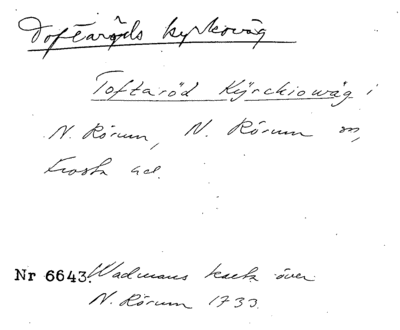 Toftaröds kyrkoväg
Toftaröd Kÿrchiowäg i
N. Rörum, N. Rörum sn,
Frosta hd.
Nr 6643. Wadmans karta över
N. Rörum 1733.